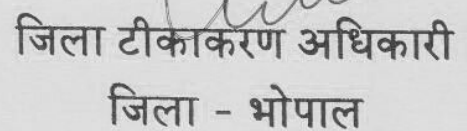 जिला टीकाकरण अधिकारी
जिला - भोपाल